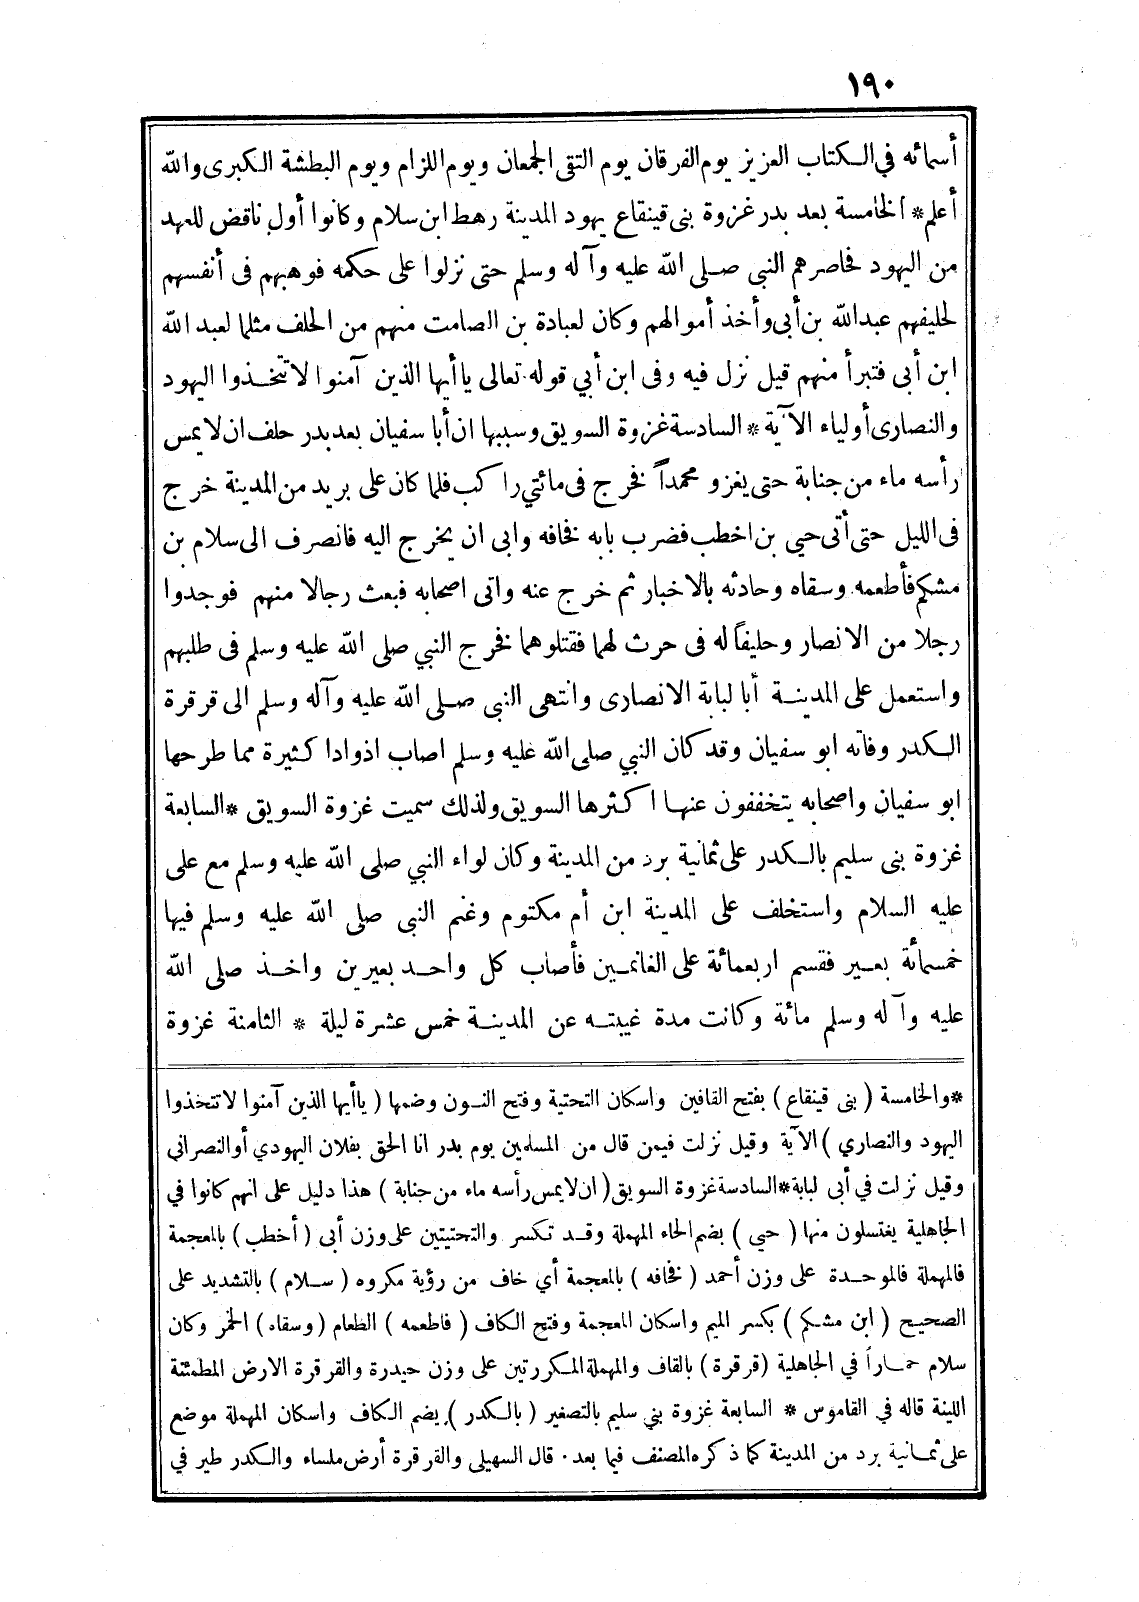 ١٩٠
أسمائه في الكتاب العزيز يوم الفرقان يوم التقى الجمعان ويوم اللزام ويوم البطشة الكبرى والله
أعلم * الخامسة بعد بدر غزوة بنى قينقاع يهود المدينة رهط ابن سلام وكانوا أول ناقض للعهد
من اليهود فحاصرهم النبى صلى الله عليه وآله وسلم حتى نزلوا على حكمه فوهبهم فى أنفسهم
لحليفهم عبدالله بن أبى وأخذ أموالهم وكان لعبادة بن الصامت منهم من الحلف مثلما لعبد الله
ابن أبى فتبرأ منهم قيل نزل فيه وفى ابن أبي قوله تعالى ياأيها الذين آمنوا لا تتخذوا اليهود
والنصارى أولياء الآية * السادسة غزوة السويق وسببها ان أبا سفيان بعد بدر حلف ان لايمس
رأسه ماء من جنابة حتى يغزو محمداً فخرج فى مائتي راكب فلما كان على بريد من المدينة خرج
فى الليل حتى أتى حيي بن اخطب فضرب بابه فخافه وابى ان يخرج اليه فانصرف الى سلام بن
مشكم فأطعمه وسقاه وحادثه بالاخبار ثم خرج عنه واتى اصحابه فبعث رجالا منهم فوجدوا
رجلا من الانصار وحليفاً له فى حرث لهما فقتلوهما فخرج النبي صلى الله عليه وسلم فى طلبهم
واستعمل على المدينة أبا لبابة الانصارى وانتهى النبى صلى الله عليه وآله وسلم الى قرقرة
الكدر وفاته ابو سفيان وقد كان النبي صلى الله عليه وسلم اصاب اذوادا كثيرة مما طرحها
ابو سفيان واصحابه يتخففون عنها اكثرها السويق ولذلك سميت غزوة السويق * السابعة
غزوة بنى سليم بالكدر على ثمانية برد من المدينة وكان لواء النبي صلى الله عليه وسلم مع على
عليه السلام واستخلف على المدينة ابن أم مكتوم وغنم النبى صلى الله عليه وسلم فيها
خمسمائة بعير فقسم اربعمائة على الغانمين فأصاب كل واحد بعيرين واخذ صلى الله
عليه وآله وسلم مائة وكانت مدة غيبته عن المدينة خمس عشرة ليلة * الثامنة غزوة
*والخامسة (بنى قينقاع) بفتح القافين واسكان التحتية وفتح النون وضمها (ياأيها الذين آمنوا لا تتخذوا
اليهود والنصاري) الآية وقيل نزلت فيمن قال من المسلمين يوم بدر انا الحق بفلان اليهودي أو النصراني
وقيل نزلت في أبى لبابة * السادسة غزوة السويق (ان لايمس رأسه ماء من جنابة) هذا دليل على انهم كانوا في
الجاهلية يغتسلون منها (حيي) بضم الحاء المهملة وقد تكسر والتحتيتين على وزن أبى (أخطب) بالمعجمة
فالمهملة فالموحدة على وزن أحمد (فخافه) بالمعجمة أي خاف من رؤية مكروه (سلام) بالتشديد على
الصحيح (ابن مشكم) بكسر الميم واسكان المعجمة وفتح الكاف (فاطعمه) الطعام (وسقاه) الخمر وكان
سلام خماراً في الجاهلية (قرقرة) بالقاف والمهملة المكررتين على وزن حيدرة والقرقرة الارض المطمئنة
اللينة قاله في القاموس * السابعة غزوة بني سليم بالتصغير (بالكدر) بضم الكاف واسكان المهملة موضع
على ثمانية برد من المدينة كما ذكره المصنف فيما بعد . قال السهيلى والقرقرة أرض ملساء والكدر طير في